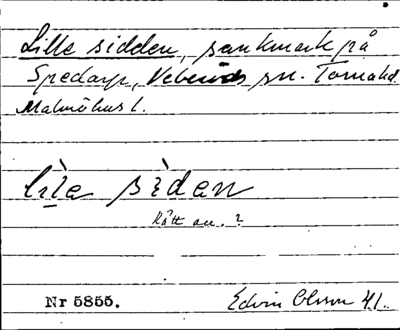 Lille sidden, sankmark på
Spedarp, Veberöds sn. Tornahd.
Malmöhus l.
lìle sìden
Rätt av. ?
Nr 5855. Edvin Olsson 41.